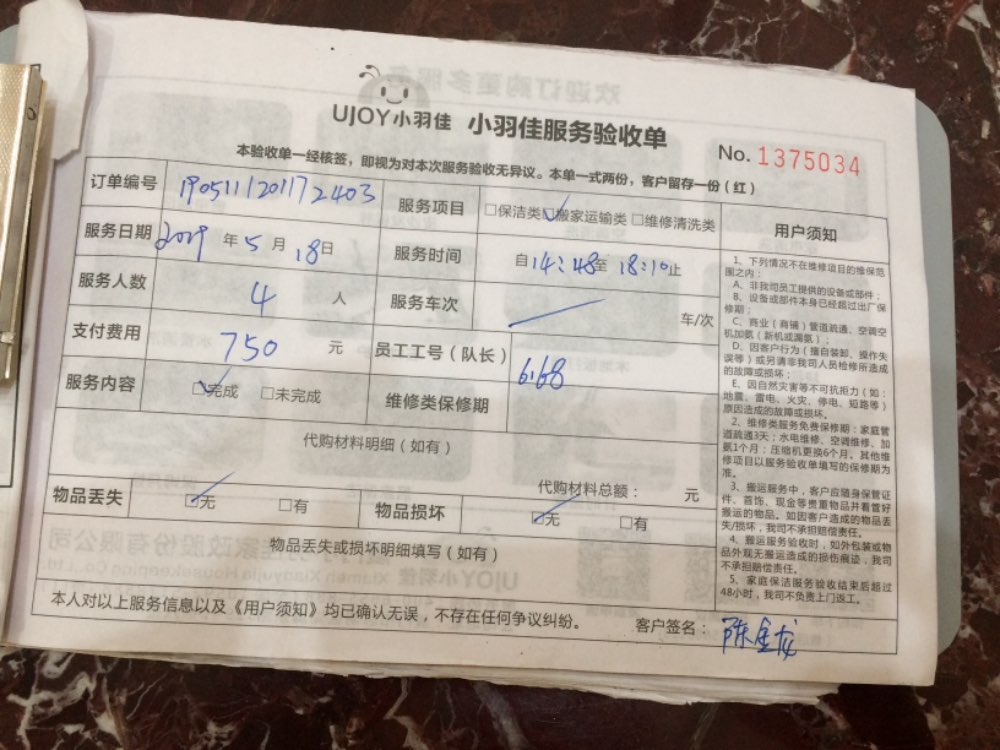 UJOY小羽佳 小羽佳服务验收单
No. 1375034
本验收单一经核签，即视为对本次服务验收无异议。本单一式两份，客户留存一份（红）
订单编号 1905111201172403 服务项目 □保洁类 □搬家运输类 □维修清洗类
服务日期 2019 年 5 月 18 日 服务时间 自 14:48 至 18:10 止
服务人数 4 人 服务车次 车/次
支付费用 750 元 员工工号（队长） 6168
服务内容 □完成 □未完成 维修类保修期
代购材料明细（如有）
代购材料总额： 元
物品丢失 □无 □有 物品损坏 □无 □有
物品丢失或损坏明细填写（如有）
本人对以上服务信息以及《用户须知》均已确认无误，不存在任何争议纠纷。
客户签名： 陈金龙
用户须知
1、下列情况不在维修项目的维保范
围之内：
A、非我司员工提供的设备或部件；
B、设备或部件本身已经超过出厂保
修期；
C、商业（商铺）管道疏通、空调空
机加氨（新机或漏氨）；
D、因客户行为（擅自装卸、操作失
误等）或另请非我司人员检修所造成
的故障或损坏；
E、因自然灾害等不可抗拒力（如：
地震、雷电、火灾、停电、短路等）
原因造成的故障或损坏。
2、维修类服务免费保修期：家庭管
道疏通3天；水电维修、空调维修、加
氨1个月；压缩机更换6个月。其他维
修项目以服务验收单填写的保修期为
准。
3、搬运服务中，客户应随身保管证
件、首饰、现金等贵重物品并看管好
搬运的物品。如因客户造成的物品丢
失/损坏，我司不承担赔偿责任。
4、搬运服务验收时，如外包装或物
品外观无搬运造成的损伤痕迹，我司
不承担赔偿责任。
5、家庭保洁服务验收结束后超过
48小时，我司不负责上门返工。